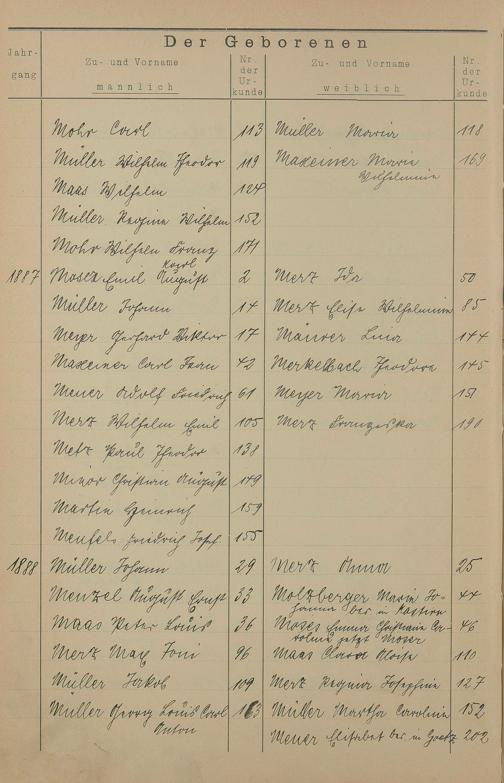 Der Geborenen
Jahr-
gang
Zu- und Vorname
männlich
Nr.
der
Ur-
kunde
Zu- und Vorname
weiblich
Nr.
der
Ur-
kunde
Mohr Carl 113 Müller Maria 118
Müller Wilhelm Theodor 119 Maxeiner Marie 169
Wilhelmine
Maas Wilhelm 124
Müller Wilhelm 152
Mohr Wilhelm Franz 171
Karl
1887 Moser Emil August 2 Merz Ida 50
Müller Johann 14 Merz Elise Wilhelmine 85
Meyer Gerhard Viktor 17 Maurer Lina 144
Maxeiner Carl 42 Merkelbach Theodore 145
Adolf Friedrich 61 Meyer Maria 151
Merz Wilhelm Emil 105 Merz Franziska 190
Metz Paul Theodor 138
Minor Christian August 149
Martin Heinrich 159
Friedrich Josef 155
1888 Müller Johann 29 Merz Anna 25
Menzel August Ernst 33 Molzberger Maria Jo- 44
hanna
Maas Peter Louis 36 Moses Emma Christiane Ca- 46
roline jetzt Moser
Merz Max Toni 96 Maas Clara Aloise 110
Müller Jakob 109 Merz Regina Josephine 127
Müller Georg Louis Carl 163 Müller Martha Caroline 152
Anton
Elisabet 202